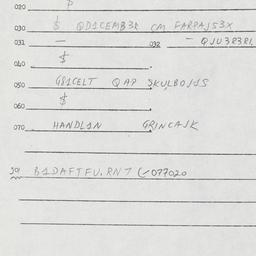 020
030 $ QD1CEMB3R CM FARPAJS3X
031 — 032 — QJU3R3RL
040 $
050 GS1CELT QAP SKULBOJ1S
060 $
070 HANDL1N GRINCAJK
B1DAFTFU.RN7 077020